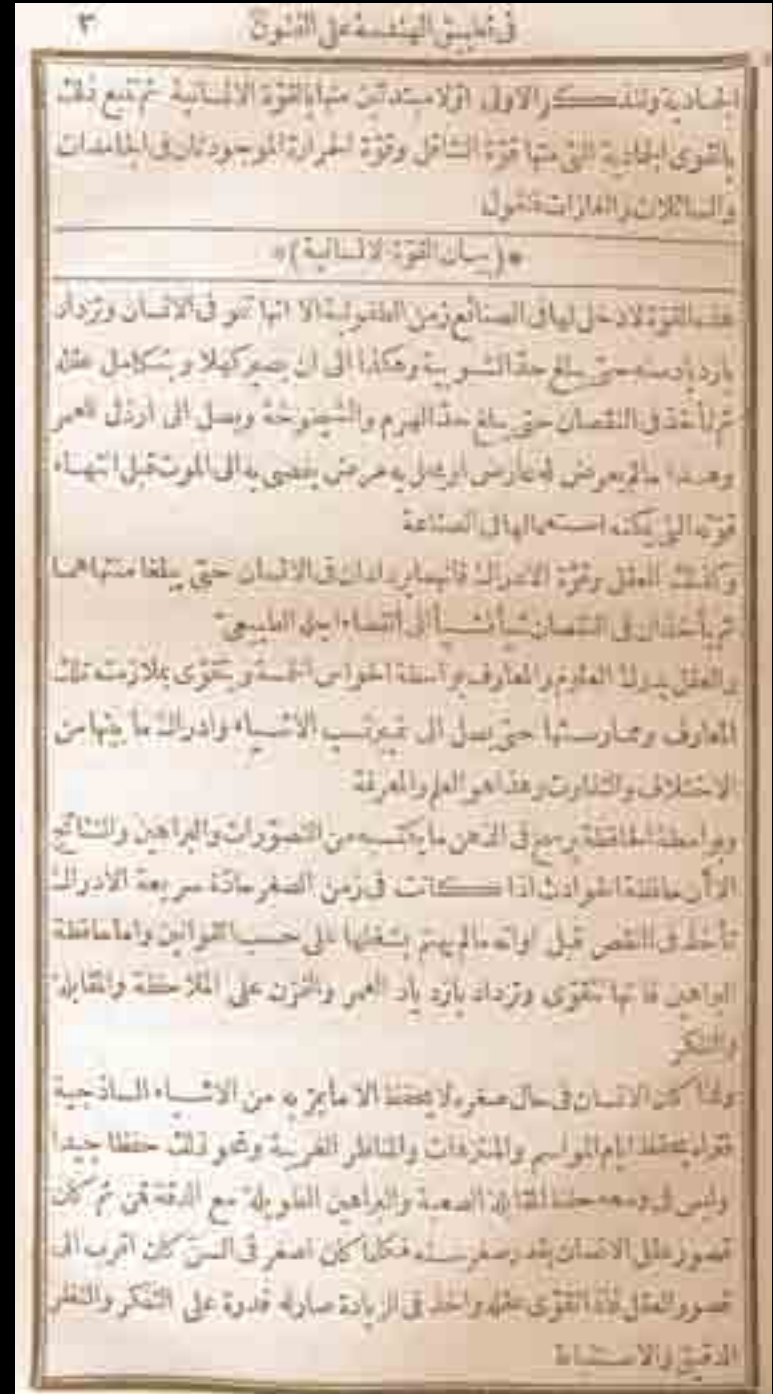 في تطبيق الهندسة على الفنون ٣
الجمادية ولنذكر الاولى اولا مبتدئين منها بالقوة الانسانية ثم نتبع ذلك
بالقوى الجمادية التي منها قوة التثاقل وقوة الحرارة الموجودتان في الجامدات
والسائلات والغازات فنقول
*(بيان القوة الانسانية)*
هذه القوة لا دخل لها في الصنائع زمن الطفولية الا انها تنمو في الانسان وتزداد
بازدياد سنه حتى يبلغ حد الشبوبية وهكذا الى ان يصير كهلا ويتكامل عقله
ثم تأخذ في النقصان حتى يبلغ حد الهرم والشيخوخة ويصل الى ارذل العمر
وهذا مالم يعرض له عارض او يحل به مرض يفضي به الى الموت قبل انتهاء
قوته التي يمكنه استعمالها في الصناعة
وكذلك العقل وقوة الادراك فانهما يزدادان في الانسان حتى يبلغا منتهاهما
ثم يأخذان في النقصان شيأ فشيأ الى انقضاء اجله الطبيعي
والعقل يدرك العلوم والمعارف بواسطة الحواس الخمسة ويتقوى بملازمته تلك
المعارف وممارستها حتى يصل الى تمييز نسب الاشياء وادراك ما بينها من
الاختلاف والتفاوت وهذا هو العلم والمعرفة
وبواسطة الحافظة يرسم في الذهن ما يكتسبه من التصورات والبراهين والنتائج
الا أن حافظة الحوادث اذا كانت في زمن الصغر حادة سريعة الادراك
تأخذ في النقص قبل اوانه مالم يهتم بشغلها على حسب القوانين واما حافظة
البراهين فانها تتقوى وتزداد بازدياد العمر والتمرن على الملاحظة والمقابلة
والتفكر
ولذا كان الانسان في حال صغره لا يحفظ الا ما يمر به من الاشياء الساذجية
فتراه يحفظ ايام المواسم والمنتزهات والمناظر الغريبة ونحو ذلك حفظا جيدا
وليس في وسعه حفظ المقابلة الصعبة والبراهين الطويلة مع الدقة فمن ثم كان
قصور عقل الانسان بقدر صغر سنه فكلما كان اصغر في السن كان اقرب الى
قصور العقل فاذا تقوى عقله واخذ في الزيادة صار له قدرة على التفكر والنظر
الدقيق والاستنباط